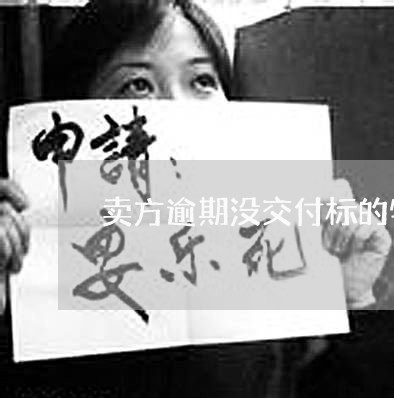 申請：
卖方逾期没交付标的
乐死